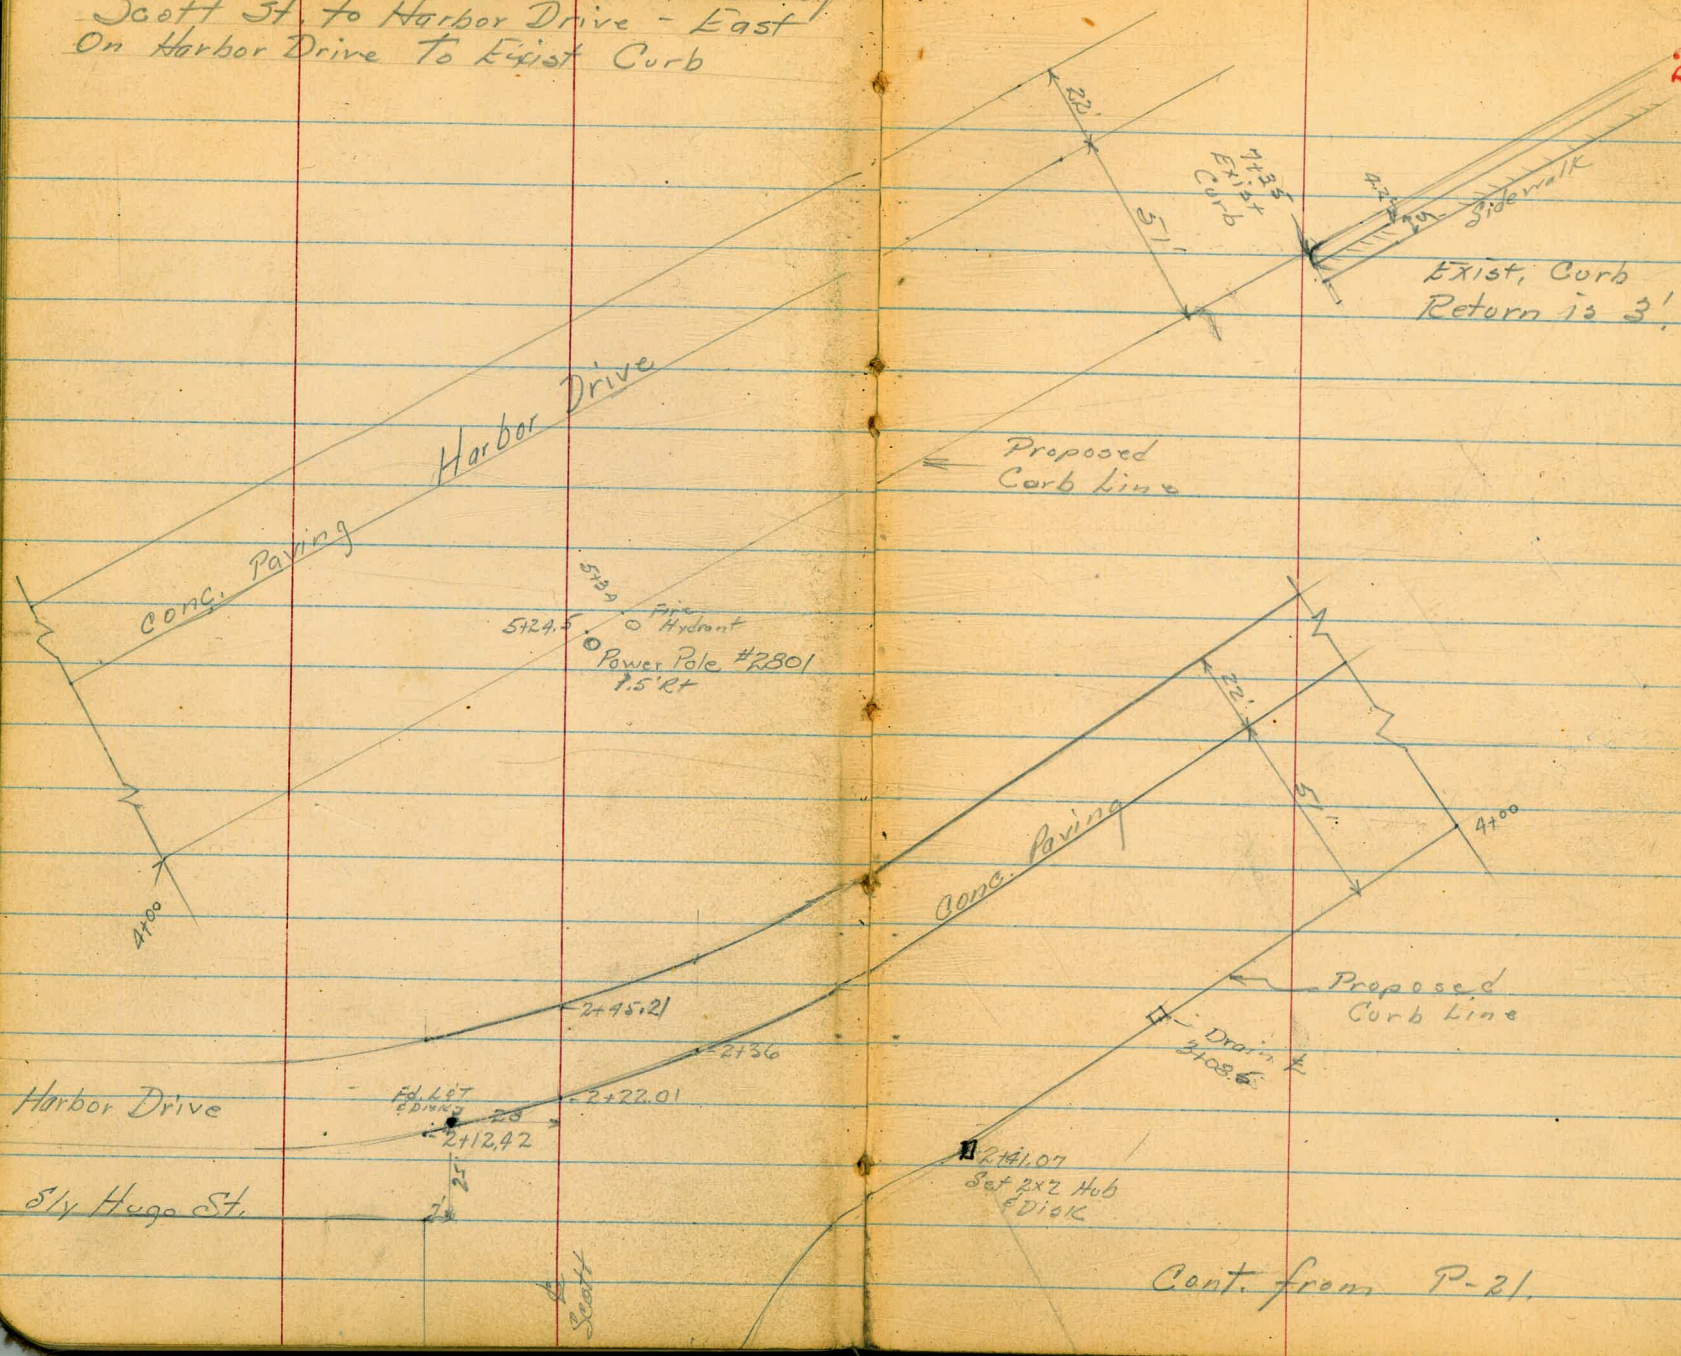 Scott St. to Harbor Drive - East
On Harbor Drive To Exist Curb
22'
51'
7+35
Exist
Curb
Sidewalk
Exist. Curb
Return is 3'.
Harbor Drive
Conc. Paving
Proposed
Curb Line
5+24.5
Fire
Hydrant
Power Pole #2801
1.5' Rt
4+00
22'
51'
4+00
Conc. Paving
Proposed
Curb Line
Drain ℄
3+08.5
2+45.21
2+36
2+22.01
Harbor Drive
Fd. L&T
& Disk
28
2+12.42
25'
2'
Sly Hugo St.
℄
Scott
2+41.07
Set 2x2 Hub
& Disk
Cont. from P-21.